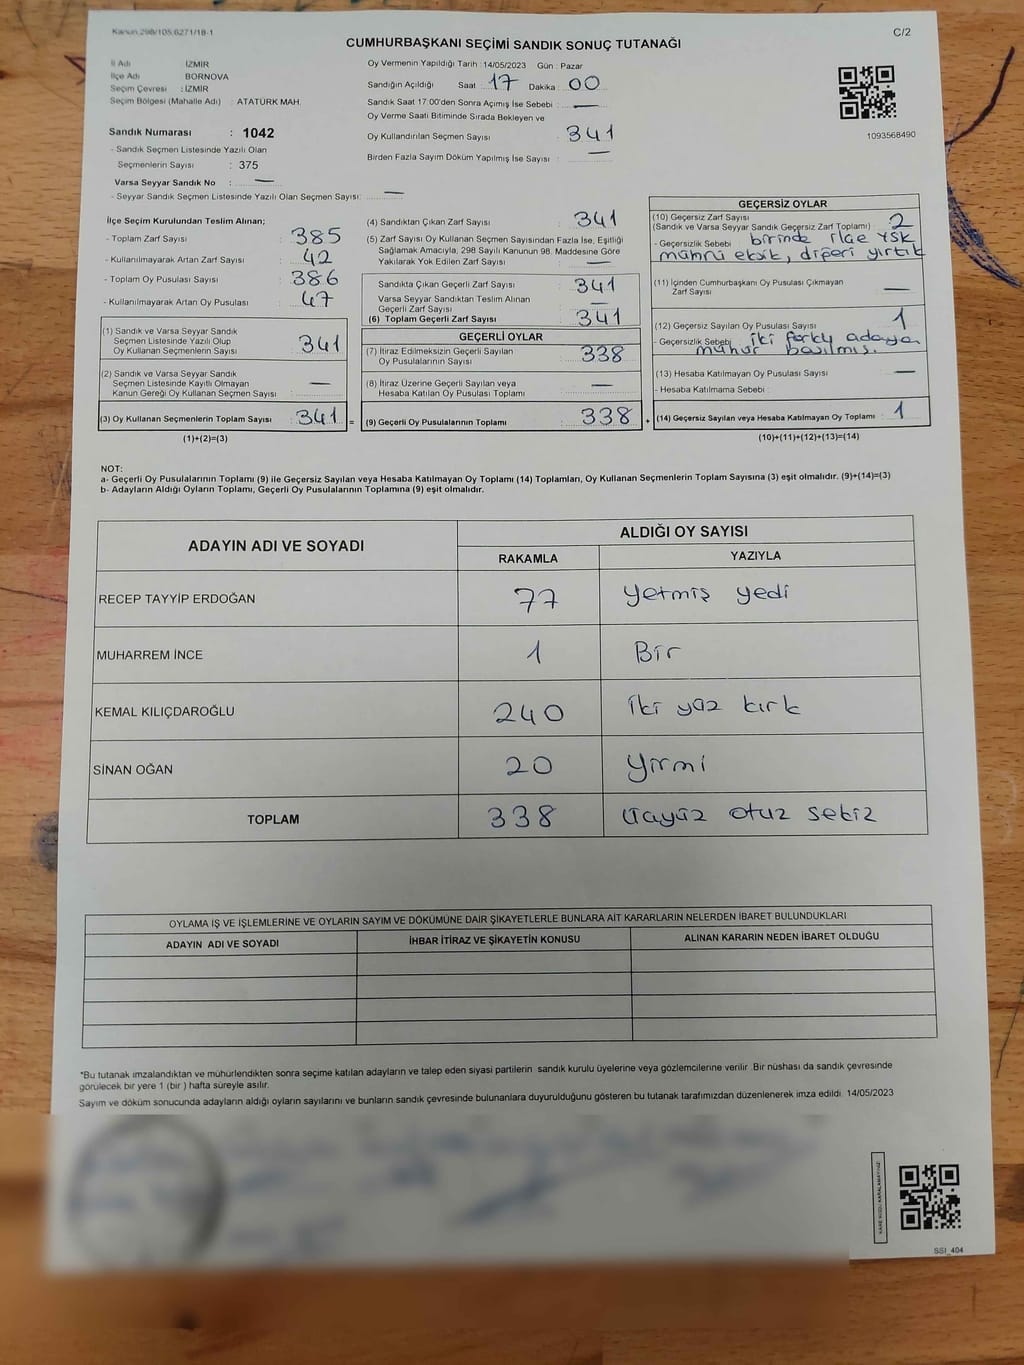 Kanun:298/105,6271/18-1
C/2
CUMHURBAŞKANI SEÇİMİ SANDIK SONUÇ TUTANAĞI
İl Adı İZMİR
İlçe Adı BORNOVA
Seçim Çevresi : İZMİR
Seçim Bölgesi (Mahalle Adı) : ATATÜRK MAH.
Sandık Numarası : 1042
- Sandık Seçmen Listesinde Yazılı Olan
Seçmenlerin Sayısı : 375
Varsa Seyyar Sandık No : —
- Seyyar Sandık Seçmen Listesinde Yazılı Olan Seçmen Sayısı: —
Oy Vermenin Yapıldığı Tarih :14/05/2023 Gün : Pazar
Sandığın Açıldığı Saat 17 Dakika 00
Sandık Saat 17:00'den Sonra Açımış İse Sebebi : —
Oy Verme Saati Bitiminde Sırada Bekleyen ve
Oy Kullandırılan Seçmen Sayısı 341
Birden Fazla Sayım Döküm Yapılmış İse Sayısı : —
1093568490
İlçe Seçim Kurulundan Teslim Alınan;
- Toplam Zarf Sayısı : 385
- Kullanılmayarak Artan Zarf Sayısı : 42
- Toplam Oy Pusulası Sayısı : 386
- Kullanılmayarak Artan Oy Pusulası : 47
(1) Sandık ve Varsa Seyyar Sandık
Seçmen Listesinde Yazılı Olup
Oy Kullanan Seçmenlerin Sayısı : 341
(2) Sandık ve Varsa Seyyar Sandık
Seçmen Listesinde Kayıtlı Olmayan
Kanun Gereği Oy Kullanan Seçmen Sayısı : —
(3) Oy Kullanan Seçmenlerin Toplam Sayısı : 341 =
(1)+(2)=(3)
(4) Sandıktan Çıkan Zarf Sayısı : 341
(5) Zarf Sayısı Oy Kullanan Seçmen Sayısından Fazla İse, Eşitliği
Sağlamak Amacıyla, 298 Sayılı Kanunun 98. Maddesine Göre
Yakılarak Yok Edilen Zarf Sayısı : —
Sandıkta Çıkan Geçerli Zarf Sayısı : 341
Varsa Seyyar Sandıktan Teslim Alınan
Geçerli Zarf Sayısı : —
(6) Toplam Geçerli Zarf Sayısı : 341
GEÇERLİ OYLAR
(7) İtiraz Edilmeksizin Geçerli Sayılan
Oy Pusulasının Sayısı : 338
(8) İtiraz Üzerine Geçerli Sayılan veya
Hesaba Katılan Oy Pusulası Toplamı : —
(9) Geçerli Oy Pusulalarının Toplamı : 338 +
GEÇERSİZ OYLAR
(10) Geçersiz Zarf Sayısı
(Sandık ve Varsa Seyyar Sandık Geçersiz Zarf Toplamı) : 2
- Geçersizlik Sebebi : birinde ilçe YSK
mührü eksik, diğeri yırtık
(11) İçinden Cumhurbaşkanı Oy Pusulası Çıkmayan
Zarf Sayısı : —
(12) Geçersiz Sayılan Oy Pusulası Sayısı : 1
- Geçersizlik Sebebi : iki farklı adaya
mühür basılmış.
(13) Hesaba Katılmayan Oy Pusulası Sayısı : —
- Hesaba Katılmama Sebebi :
(14) Geçersiz Sayılan veya Hesaba Katılmayan Oy Toplamı : 1
(10)+(11)+(12)+(13)=(14)
NOT:
a- Geçerli Oy Pusulalarının Toplamı (9) ile Geçersiz Sayılan veya Hesaba Katılmayan Oy Toplamı (14) Toplamları, Oy Kullanan Seçmenlerin Toplam Sayısına (3) eşit olmalıdır. (9)+(14)=(3)
b- Adayların Aldığı Oyların Toplamı, Geçerli Oy Pusulalarının Toplamına (9) eşit olmalıdır.
ADAYIN ADI VE SOYADI
ALDIĞI OY SAYISI
RAKAMLA YAZIYLA
RECEP TAYYİP ERDOĞAN 77 Yetmiş yedi
MUHARREM İNCE 1 Bir
KEMAL KILIÇDAROĞLU 240 iki yüz kırk
SİNAN OĞAN 20 Yirmi
TOPLAM 338 Üçyüz otuz sekiz
OYLAMA İŞ VE İŞLEMLERİNE VE OYLARIN SAYIM VE DÖKÜMÜNE DAİR ŞİKAYETLERLE BUNLARA AİT KARARLARIN NELERDEN İBARET BULUNDUKLARI
ADAYIN ADI VE SOYADI İHBAR İTİRAZ VE ŞİKAYETİN KONUSU ALINAN KARARIN NEDEN İBARET OLDUĞU
*Bu tutanak imzalandıktan ve mühürlendikten sonra seçime katılan adayların ve talep eden siyasi partilerin sandık kurulu üyelerine veya gözlemcilerine verilir. Bir nüshası da sandık çevresinde
görülecek bir yere 1 (bir ) hafta süreyle asılır.
Sayım ve döküm sonucunda adayların aldığı oyların sayılarını ve bunların sandık çevresinde bulunanlara duyurulduğunu gösteren bu tutanak tarafımızdan düzenlenerek imza edildi. 14/05/2023
KARE KODU KARALAMAYINIZ
SSI_404